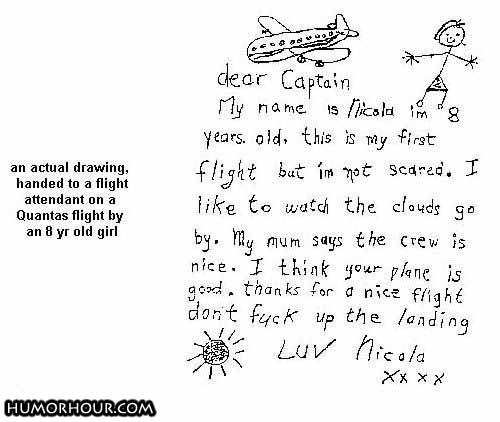 dear Captain
My name is Nicola im 8
years old, this is my first
flight but im not scared. I
like to watch the clouds go
by. My mum says the crew is
nice. I think your plane is
good. thanks for a nice flight
don't fuck up the landing
LUV Nicola
xxxx
an actual drawing,
handed to a flight
attendant on a
Quantas flight by
an 8 yr old girl
HUMORHOUR.COM